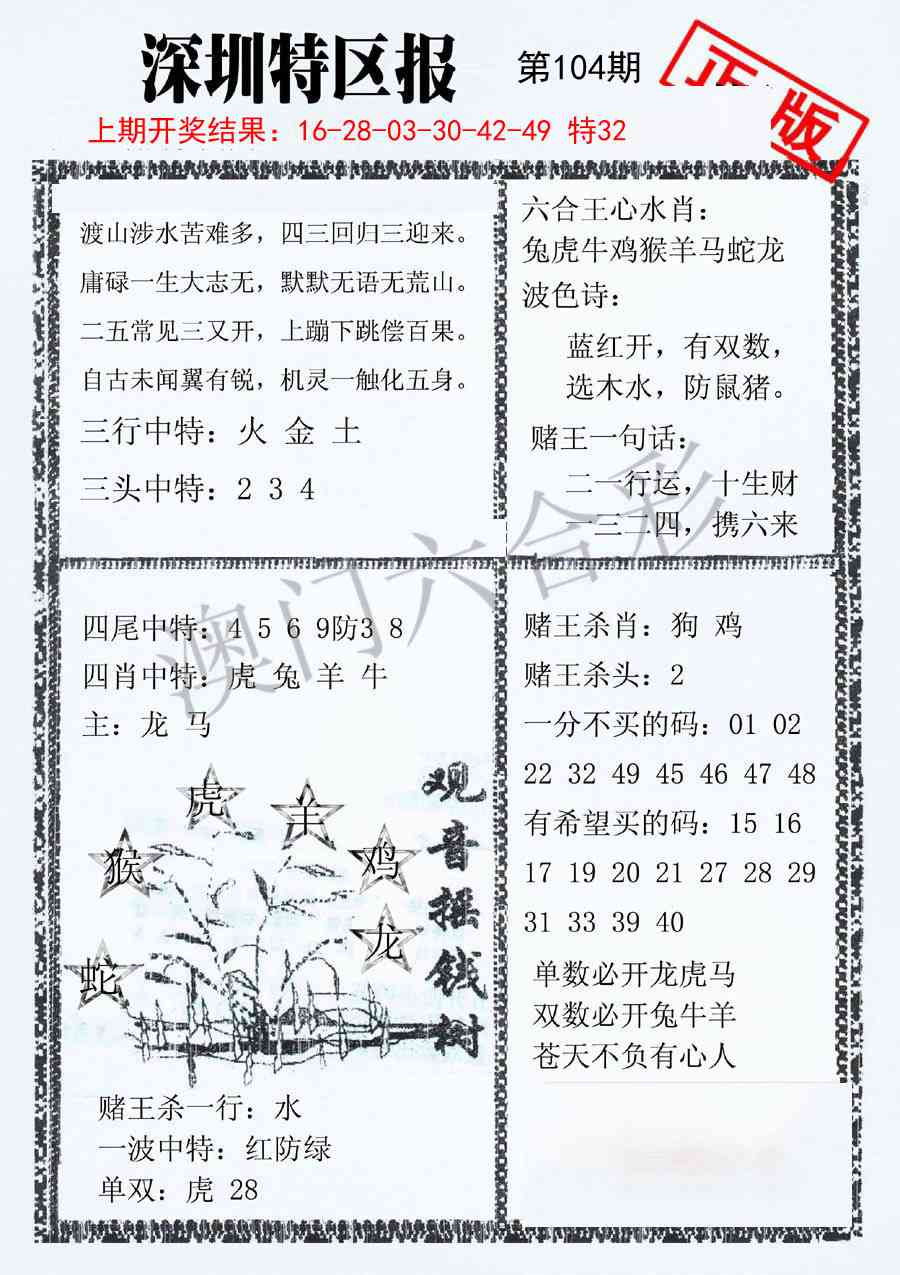 深圳特区报 第104期
正版
上期开奖结果：16-28-03-30-42-49 特32
渡山涉水苦难多，四三回归三迎来。
庸碌一生大志无，默默无语无荒山。
二五常见三又开，上蹦下跳偿百果。
自古未闻翼有锐，机灵一触化五身。
三行中特：火 金 土
三头中特：2 3 4
六合王心水肖：
兔虎牛鸡猴羊马蛇龙
波色诗：
蓝红开，有双数，
选木水，防鼠猪。
赌王一句话：
二一行运，十生财
一三二四，携六来
澳门六合彩
四尾中特：4 5 6 9防3 8
四肖中特：虎 兔 羊 牛
主：龙 马
虎
羊
猴
鸡
龙
蛇
观音摇钱树
赌王杀一行：水
一波中特：红防绿
单双：虎 28
赌王杀肖：狗 鸡
赌王杀头：2
一分不买的码：01 02
22 32 49 45 46 47 48
有希望买的码：15 16
17 19 20 21 27 28 29
31 33 39 40
单数必开龙虎马
双数必开兔牛羊
苍天不负有心人